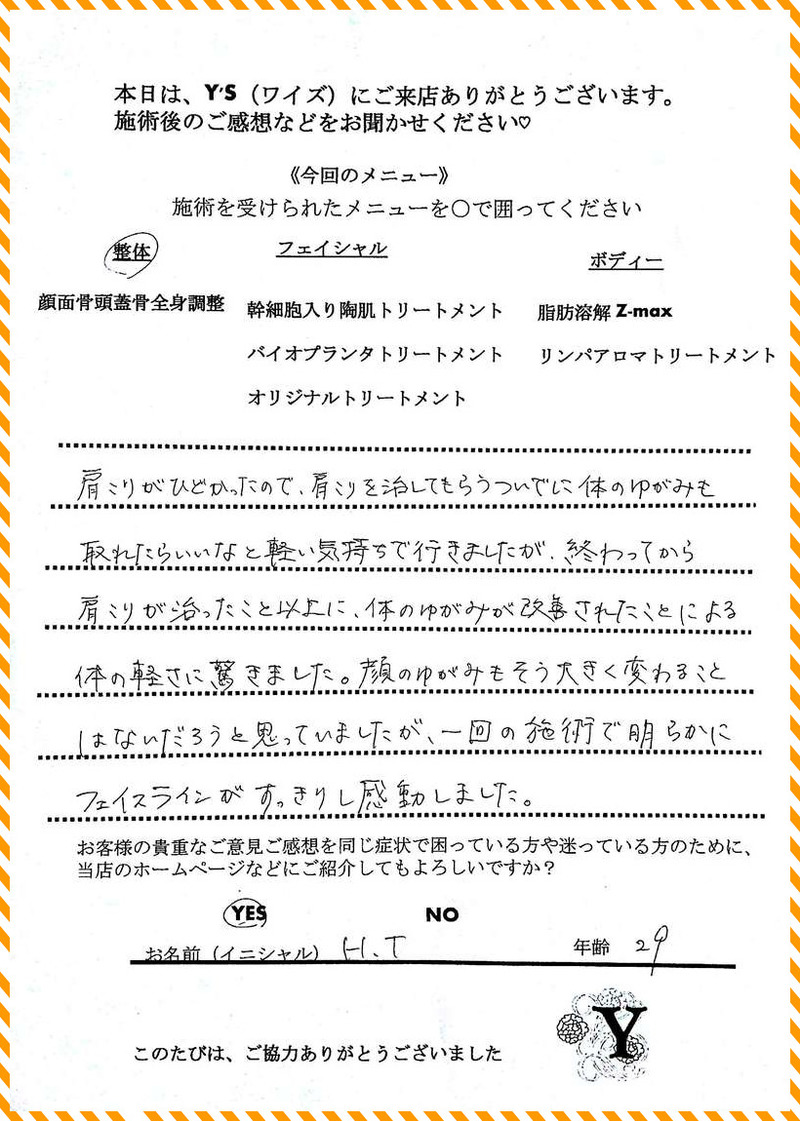 本日は、Y'S（ワイズ）にご来店ありがとうございます。
施術後のご感想などをお聞かせください♡
《今回のメニュー》
施術を受けられたメニューを○で囲ってください
整体 フェイシャル ボディー
顔面骨頭蓋骨全身調整 幹細胞入り陶肌トリートメント 脂肪溶解 Z-max
バイオプランタトリートメント リンパアロマトリートメント
オリジナルトリートメント
肩こりがひどかったので、肩こりを治してもらうついでに体のゆがみも
取れたらいいなと軽い気持ちで行きましたが、終わってから
肩こりが治ったこと以上に、体のゆがみが改善されたことによる
体の軽さに驚きました。顔のゆがみもそう大きく変わること
はないだろうと思っていましたが、一回の施術で明らかに
フェイスラインがすっきりし感動しました。
お客様の貴重なご意見ご感想を同じ症状で困っている方や迷っている方のために、
当店のホームページなどにご紹介してもよろしいですか？
YES NO
お名前（イニシャル） H.T 年齢 29
Y
このたびは、ご協力ありがとうございました